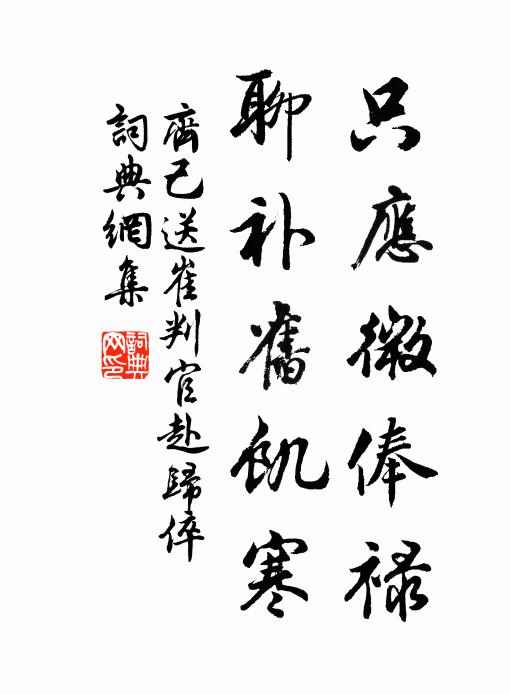 只應微俸禄
聊补舊飢寒
齊己送崔判官赴歸倅
詞典網集
詞典网印